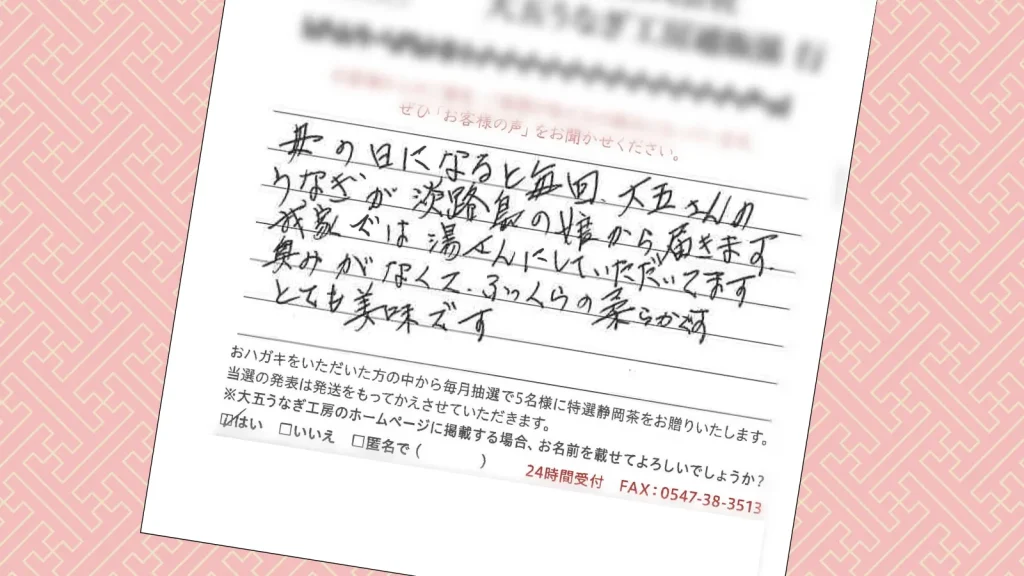 大五うなぎ工房通販係 行
ぜひ「お客様の声」をお聞かせください。
母の日になると毎回、大五さんの
うなぎが淡路島の娘から届きます。
我家では湯せんにしていただいてます
臭みがなくて、ふっくらの柔らかです
とても美味です
おハガキをいただいた方の中から毎月抽選で5名様に特選静岡茶をお贈りいたします。
当選の発表は発送をもってかえさせていただきます。
※大五うなぎ工房のホームページに掲載する場合、お名前を載せてよろしいでしょうか？
☑はい □いいえ □匿名で（ ）
24時間受付 FAX：0547-38-3513